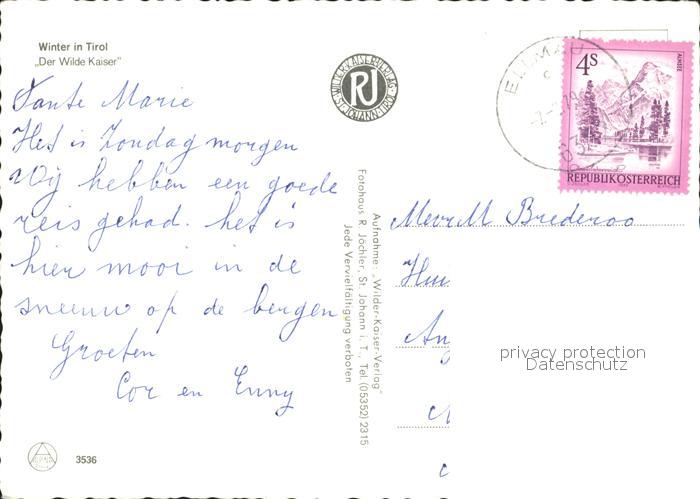 Winter in Tirol
„Der Wilde Kaiser”
Tante Marie
Het is Zondag morgen
Wij hebben een goede
reis gehad. het is
hier mooi in de
sneeuw op de bergen
Groeten
Cor en Enny
3536
WILDER-KAISER-VERLAG
RJ
ST. JOHANN-TIROL
Aufnahme: „Wilder-Kaiser-Verlag”
Fotohaus R. Jöchler, St. Johann i. T., Tel. (05352) 2315
Jede Vervielfältigung verboten
ELLMAU
4S
ALMSEE
REPUBLIK ÖSTERREICH
Mevr M Brederoo
privacy protection
Datenschutz